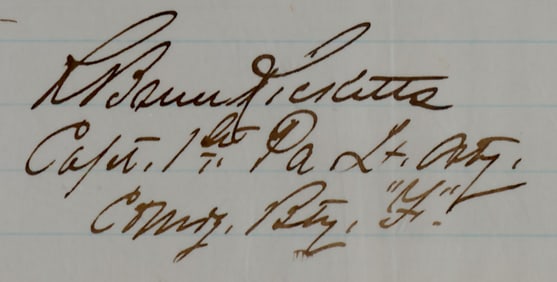 R. Bruce Ricketts
Capt. 1st Pa Lt. Arty.
Comdg. Bty. "F".